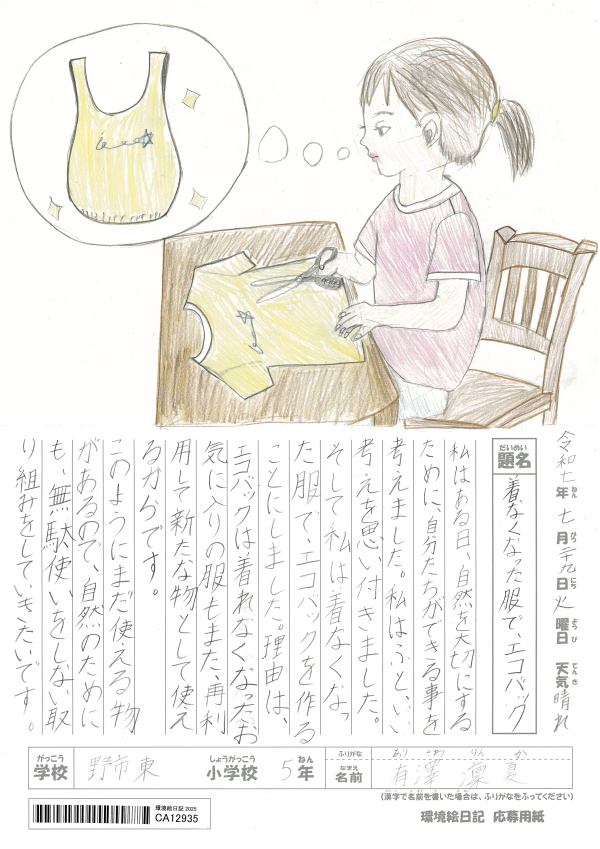 令和七年七月二十九日火曜日 天気晴れ
ねん がつ にち ようび てんき
だいめい
題名 着なくなった服で、エコバッグ
私はある日、自然を大切にする
ために、自分たちができる事を
考えました。私はふと、いい
考えを思い付きました。
そして私は着なくなっ
た服で、エコバックを作る
ことにしました。理由は、
エコバックは着れなくなったお
気に入りの服もまた、再利
用して新たな物として使え
るからです。
このようにまだ使える物
があるので、自然のために
も、無駄使いをしない取
り組みをしていきたいです。
がっこう しょうがっこう ねん ふりがな ありさわ りんか
学校 野市東 小学校 5年 なまえ 名前 有澤 凜夏
(漢字で名前を書いた場合は、ふりがなをふってください)
環境絵日記 2025
CA12935
環境絵日記 応募用紙